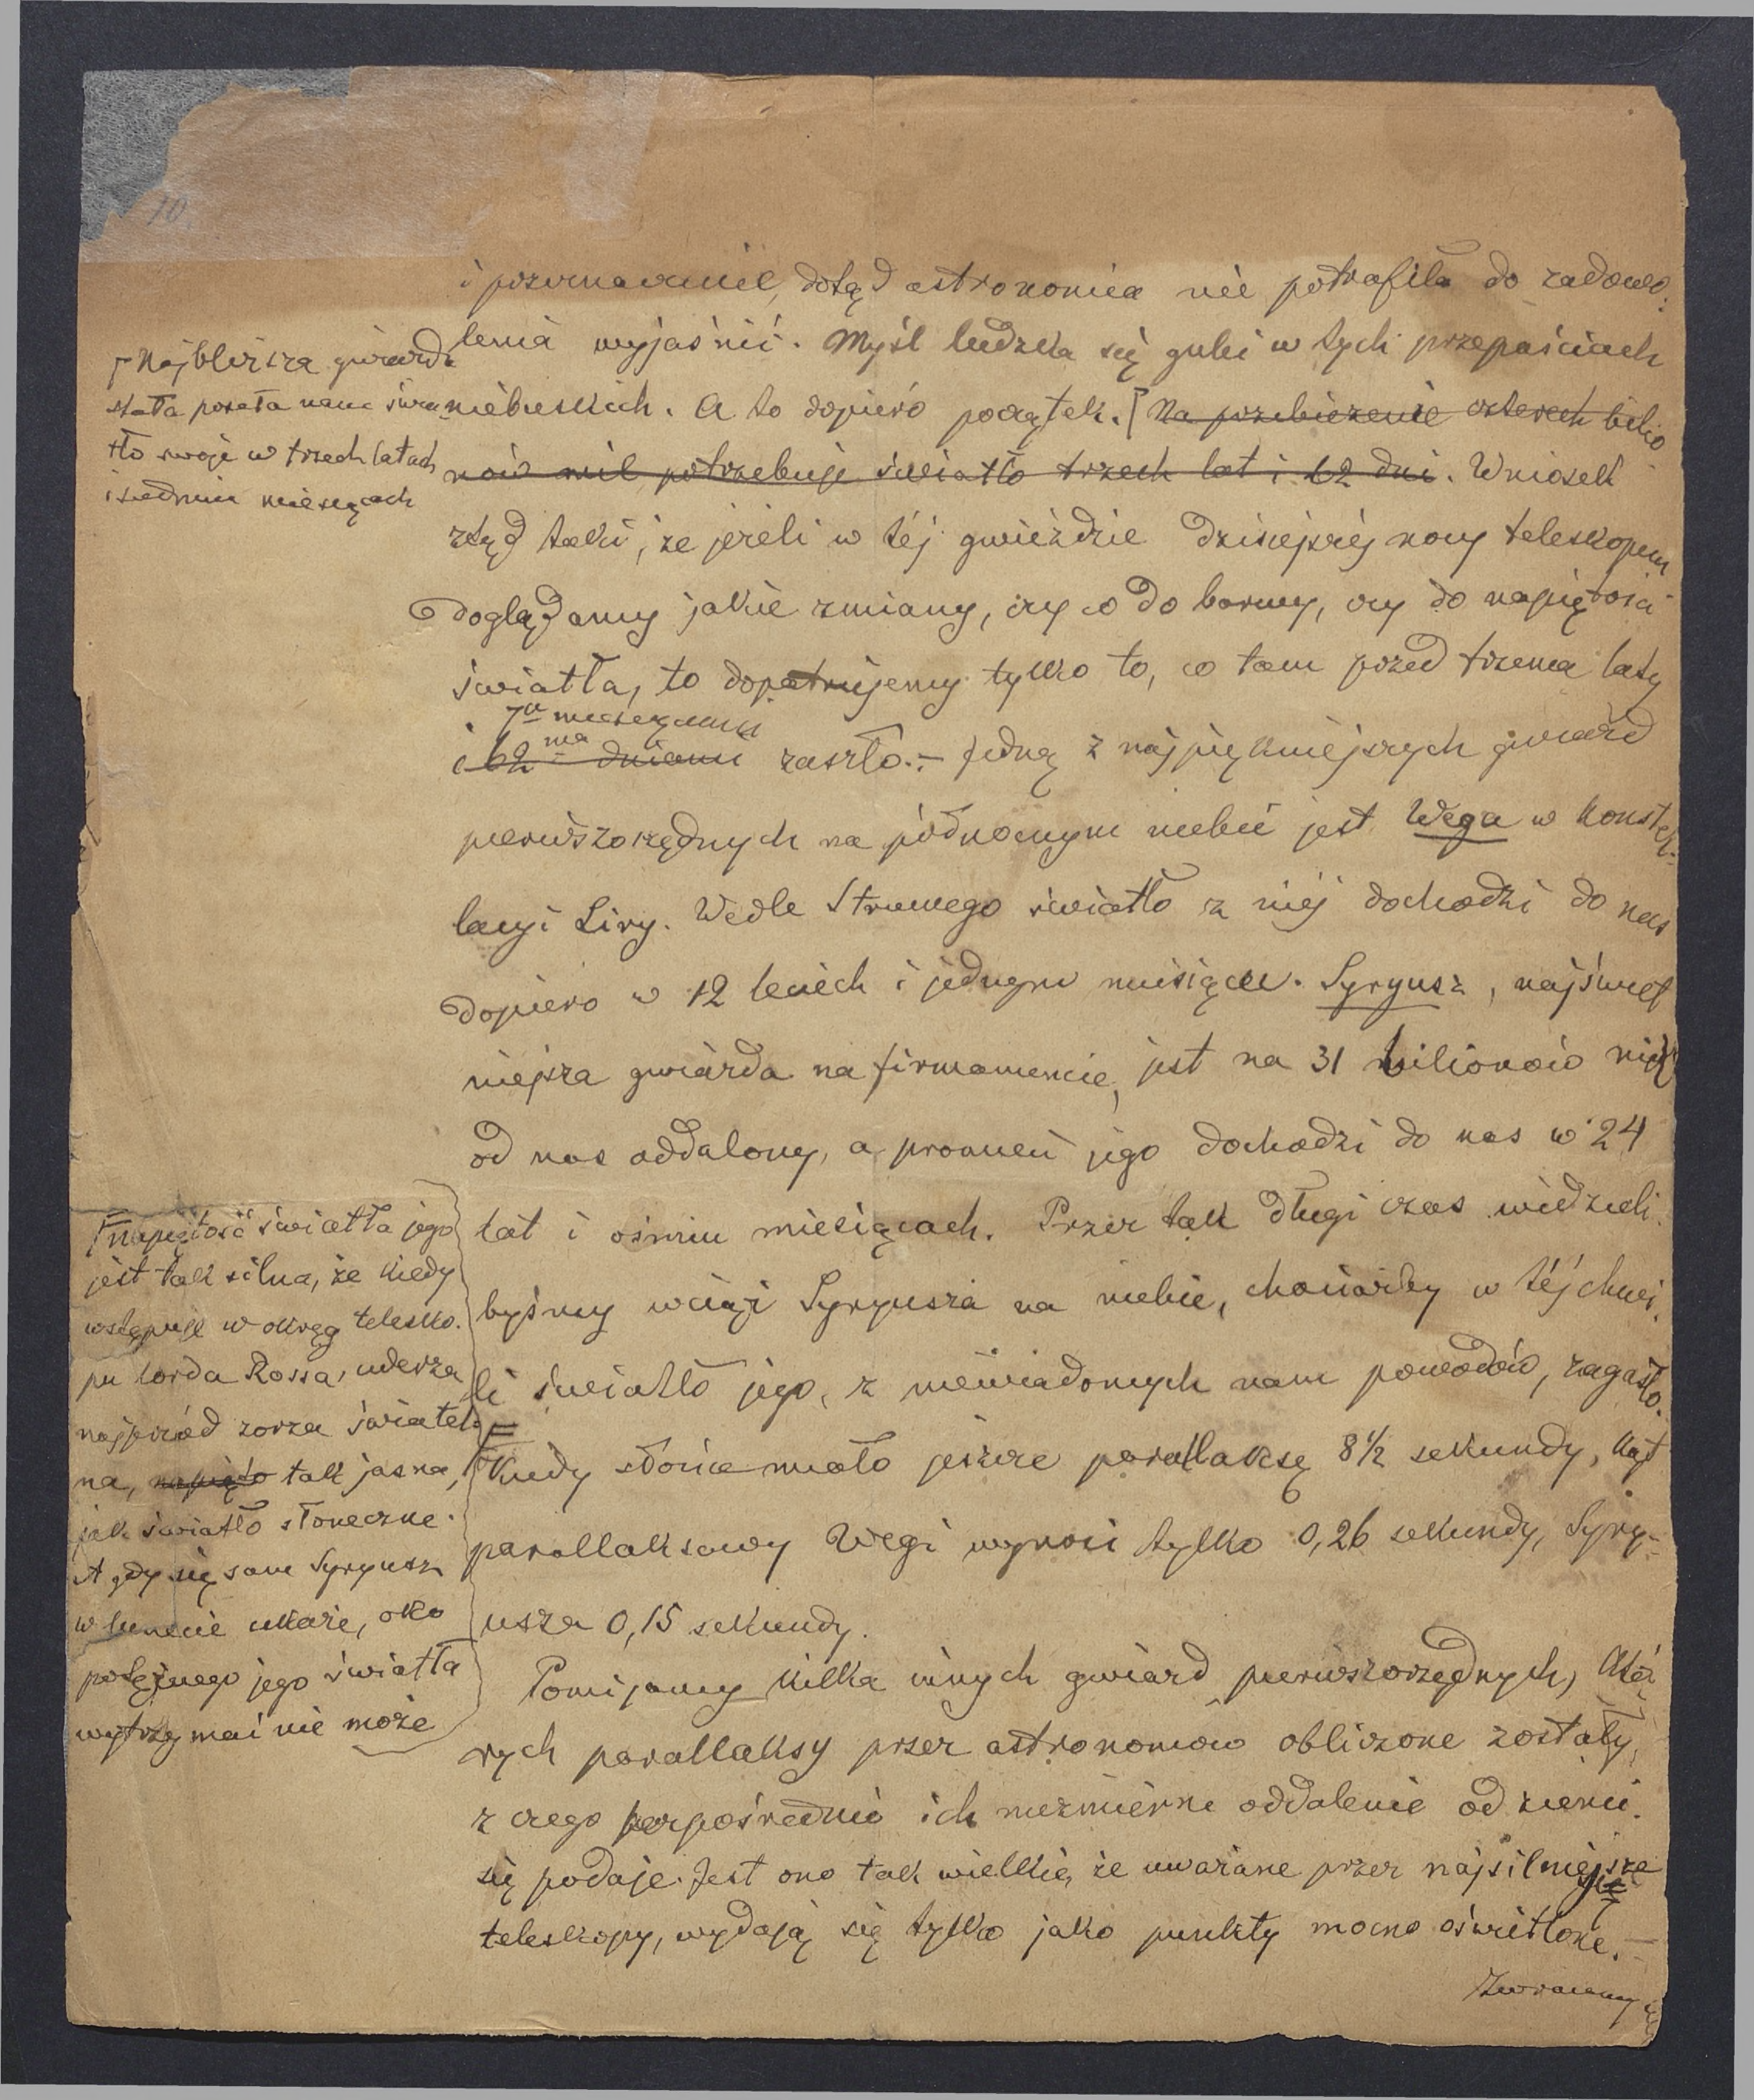 10.
i poznawanie, dotąd astronomia nie potrafiła do zadowo-
lenia wyjaśnić. Myśl ludzka się gubi w tych przepaściach
niebieskich. A to dopiero początek. Na przebieżenie czterech bilio-
nów mil potrzebuje światło trzech lat i 62 dni. Wniosek
ztąd taki, że jeżeli w téj gwieździe dzisiejszéj nocy teleskopem
doglądamy jakie zmiany, czy co do barwy, czy do napiętości
światła, to dopatrujemy tylko to, co tam przed trzema laty
i 7u miesiącami
i 62ma dniami zaszło. – Jedną z najpiękniejszych gwiazd
pierwszorzędnych na północnym niebie jest Wega w konstel-
lacyi Liry. Wedle Struwego światło z niéj dochodzi do nas
dopiero w 12 leciech i jednym miesiącu. Syryusz, najświet
niejsza gwiazda na firmamencie, jest na 31 bilionów mil
od nas oddalony, a promień jego dochodzi do nas w 24
lat i ośmiu miesiącach. Przez tak długi czas widzieli-
byśmy wciąż Syryusza na niebie, chociażby w téj chwi-
li światło jego, z niewiadomych nam powodów, zagasło.
Kiedy słońce miało jeszcze parallaksę 8½ sekundy, kąt
parallaksowy Wegi wynosi tylko 0,26 sekundy, Syry-
usza 0,15 sekundy.
Pomijamy kilka innych gwiazd pierwszorzędnych, któ-
rych parallaksy przez astronomów obliczone zostały,
z czego bezpośrednio ich niezmierne oddalenie od ziemi
się podaje. Jest ono tak wielkie, że uważane przez najsilniejsze
teleskopy, wydają się tylko jako punkty mocno oświetlone. –
Zwracamy
Najbliższa gwiazda
stała posyła nam świa-
tło swoje w trzech latach
i siedmiu miesiącach
Napiętość światła jego
jest tak silna, że kiedy
wstępuje w okrąg telesko-
pu lorda Rossa, uderza
najprzód zorza świetel-
na, napięto tak jasna,
jak światło słoneczne.
A gdy się sam Syryusz
w lunecie ukaże, oko
potężnego jego światła
wytrzymać nie może